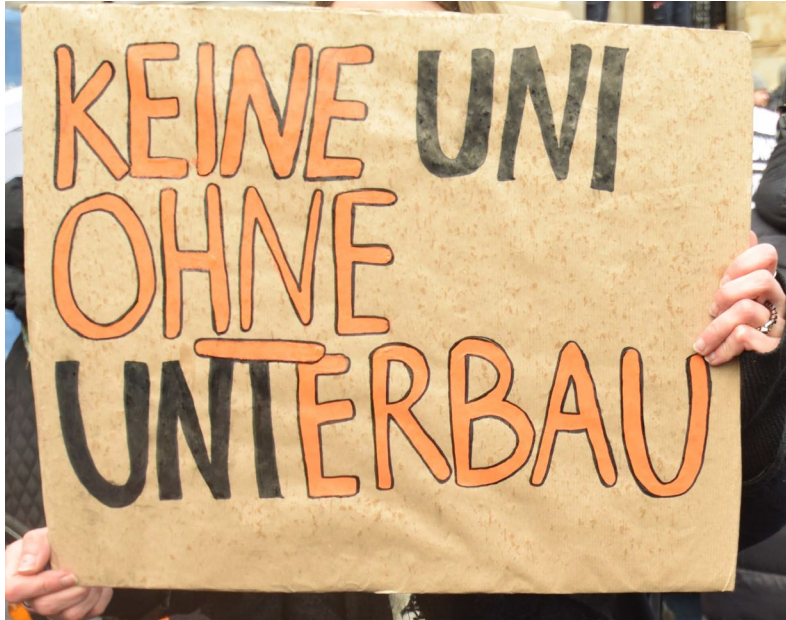 KEINE UNI
OHNE
UNTERBAU